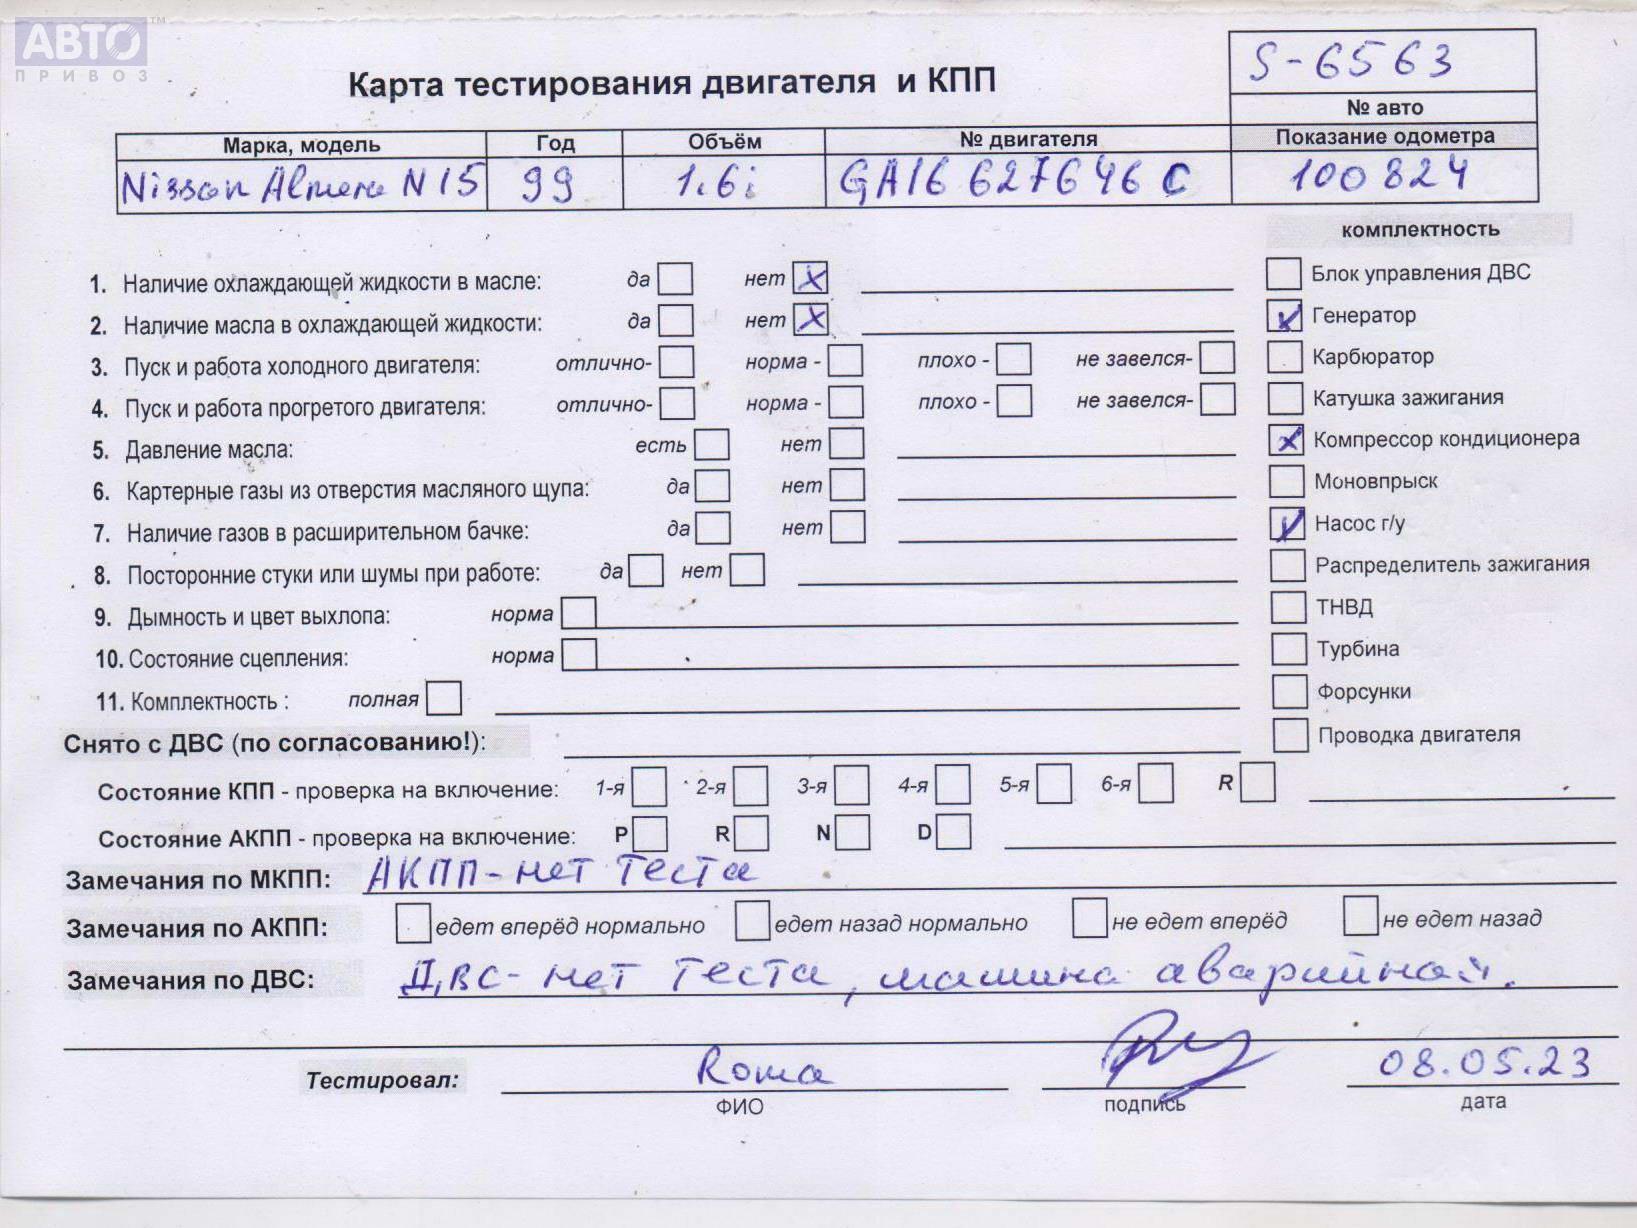 АВТО™
ПРИВОЗ
S-6563
№ авто
Карта тестирования двигателя и КПП
Марка, модель Год Объём № двигателя Показание одометра
Nissan Almera N15 99 1.6i GA16 627646C 100824
комплектность
1. Наличие охлаждающей жидкости в масле: да нет x
2. Наличие масла в охлаждающей жидкости: да нет x
3. Пуск и работа холодного двигателя: отлично- норма - плохо - не завелся-
4. Пуск и работа прогретого двигателя: отлично- норма - плохо - не завелся-
5. Давление масла: есть нет
6. Картерные газы из отверстия масляного щупа: да нет
7. Наличие газов в расширительном бачке: да нет
8. Посторонние стуки или шумы при работе: да нет
9. Дымность и цвет выхлопа: норма
10. Состояние сцепления: норма
11. Комплектность : полная
Блок управления ДВС
Генератор
Карбюратор
Катушка зажигания
Компрессор кондиционера
Моновпрыск
Насос г/у
Распределитель зажигания
ТНВД
Турбина
Форсунки
Проводка двигателя
Снято с ДВС (по согласованию!):
Состояние КПП - проверка на включение: 1-я 2-я 3-я 4-я 5-я 6-я R
Состояние АКПП - проверка на включение: P R N D
Замечания по МКПП: АКПП-нет теста
Замечания по АКПП: едет вперёд нормально едет назад нормально не едет вперёд не едет назад
Замечания по ДВС: ДВС-нет теста, машина аварийная.
Тестировал: Roma 08.05.23
ФИО подпись дата